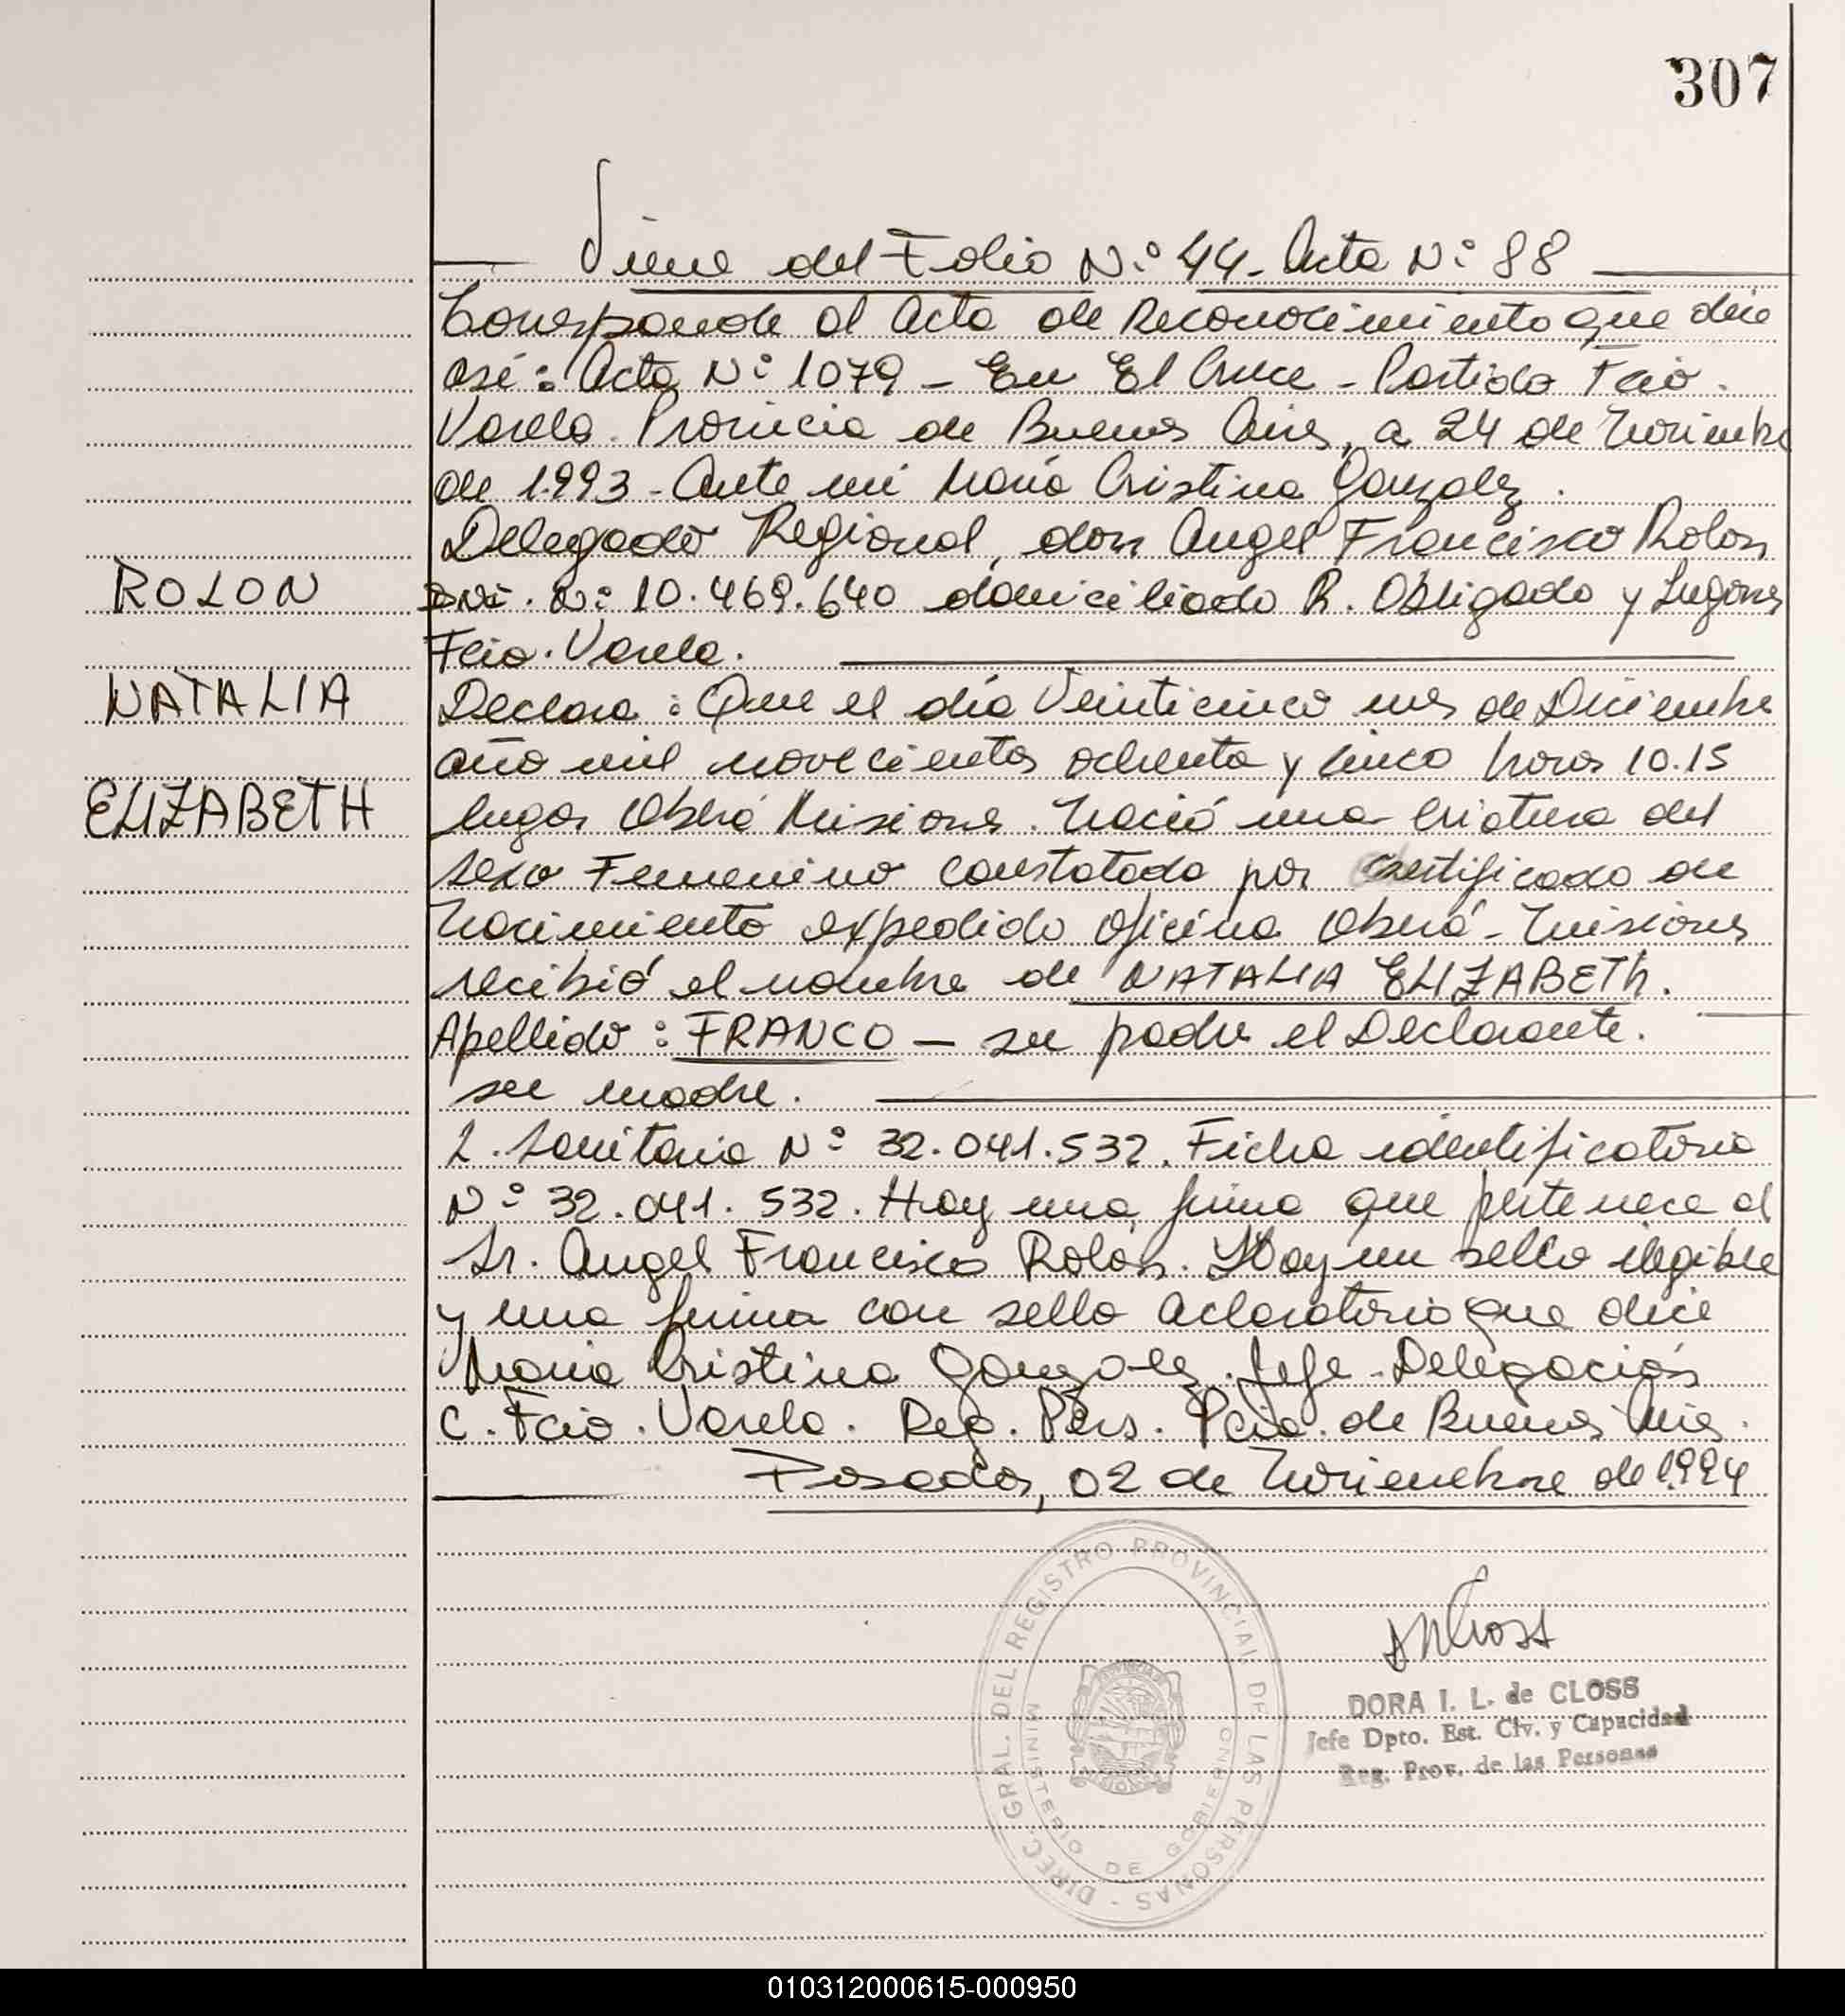 307
Viene del Folio N° 44 - Acta N° 88
Corresponde al Acta de Reconocimiento que dice
así: Acta N° 1079 - En El Cruce - Partido Fcio.
Varela. Provincia de Buenos Aires, a 24 de Noviembre
de 1.993 - Ante mi María Cristina Gonzalez.
Delegado Regional, don Angel Francisco Rolon
ROLON
DNI. N° 10.469.640 domiciliado R. Obligado y Lugones
Fcio. Varela.
NATALIA
Declara: Que el día Veinticinco mes de Diciembre
año mil novecientos ochenta y cinco hora 10.15
ELIZABETH
lugar Oberá Misiones. Nació una criatura del
sexo Femenino constatado por certificado de
Nacimiento expedido oficina Oberá - Misiones
recibió el nombre de NATALIA ELIZABETH.
Apellido: FRANCO - su padre el Declarante.
su madre.
L. Sanitaria N° 32.041.532. Ficha identificatoria
N° 32.041.532. Hay una firma que pertenece al
Sr. Angel Francisco Rolón. Hay un sello ilegible
y una firma con sello aclaratorio que dice
Maria Cristina Gonzalez. Jefe - Delegación
C. Fcio. Varela. Reg. Pers. Pcia. de Buenos Aires.
Posadas, 02 de Noviembre de 1.994
DIREC. GRAL. DEL REGISTRO PROVINCIAL DE LAS PERSONAS -
MINISTERIO DE GOBIERNO
DORA I. L. de CLOSS
Jefe Dpto. Est. Civ. y Capacidad
Reg. Prov. de las Personas
010312000615-000950